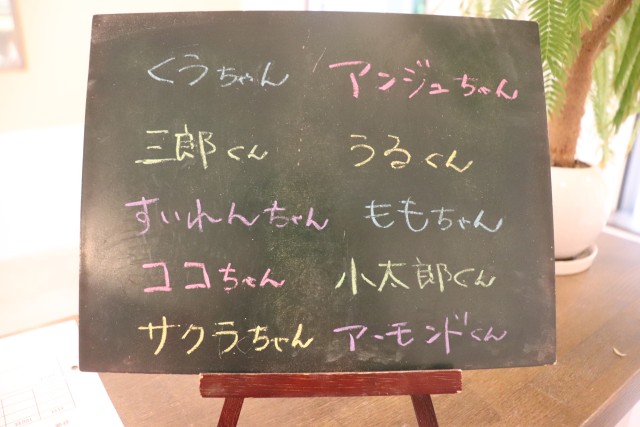 くうちゃん アンジュちゃん
三郎くん うるくん
すいれんちゃん ももちゃん
ココちゃん 小太郎くん
サクラちゃん アーモンドくん